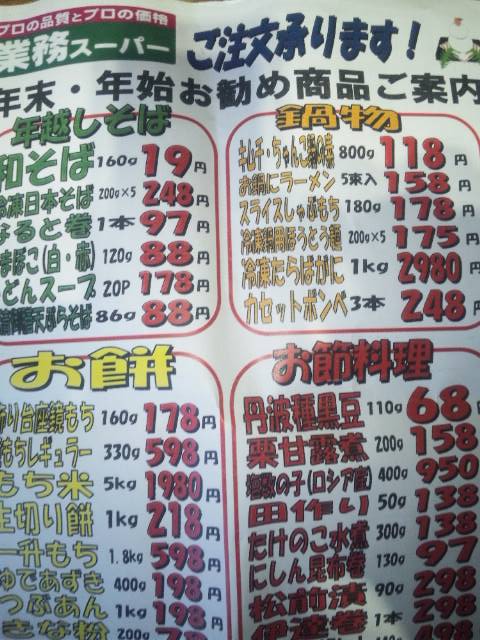 プロの品質とプロの価格
業務スーパー
ご注文承ります!
年末・年始お勧め商品ご案内
年越しそば
和そば 160g 19円
冷凍日本そば 200g×5 248円
なると巻 1本 97円
まぼこ(白・赤) 120g 88円
どんスープ 20P 178円
天ぷらそば 86g 88円
鍋物
キムチ・ちゃんこ鍋の素 800g 118円
お鍋にラーメン 5束入 158円
スライスしゃぶもち 180g 178円
冷凍鍋用ほうとう麺 200g×5 175円
冷凍たらばがに 1kg 2980円
カセットボンベ 3本 248円
お餅
飾り台座鏡もち 160g 178円
もちレギュラー 330g 598円
もち米 5kg 1980円
生切り餅 1kg 218円
一升もち 1.8kg 598円
ゆであずき 400g 198円
つぶあん 1kg 198円
きな粉 200g
お節料理
丹波種黒豆 110g 68
栗甘露煮 200g 158
塩数の子(ロシア産) 400g 950
田作り 50g 138
たけのこ水煮 300g 138
にしん昆布巻 130g 97
松前漬 90g 298
伊達巻 1本 298